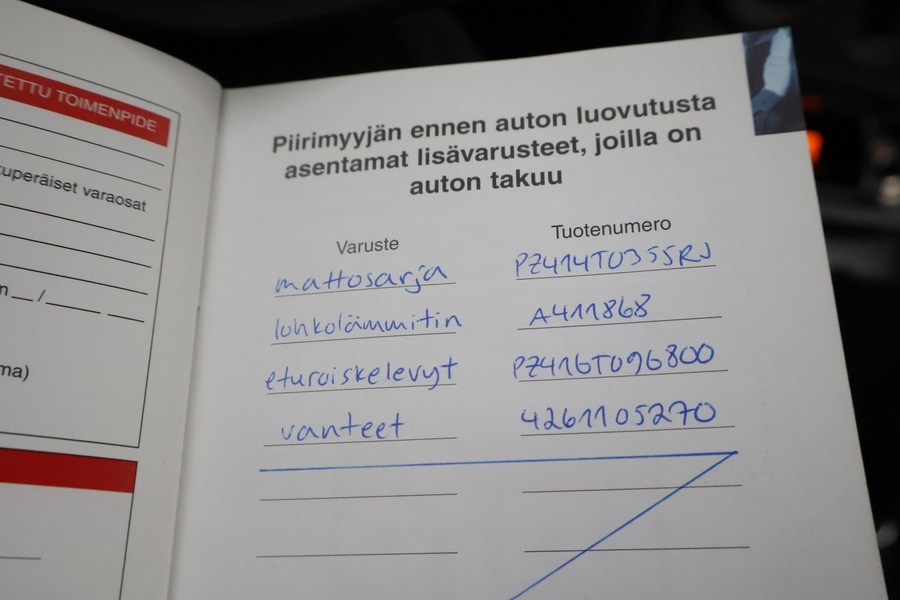 TETTU TOIMENPIDE
uperäiset varaosat
n __ / ____ ___
ma)
Piirimyyjän ennen auton luovutusta
asentamat lisävarusteet, joilla on
auton takuu
Varuste Tuotenumero
mattosarja PZ414T0355RJ
lohkolämmitin A411868
eturoiskelevyt PZ416T096800
vanteet 4261105270